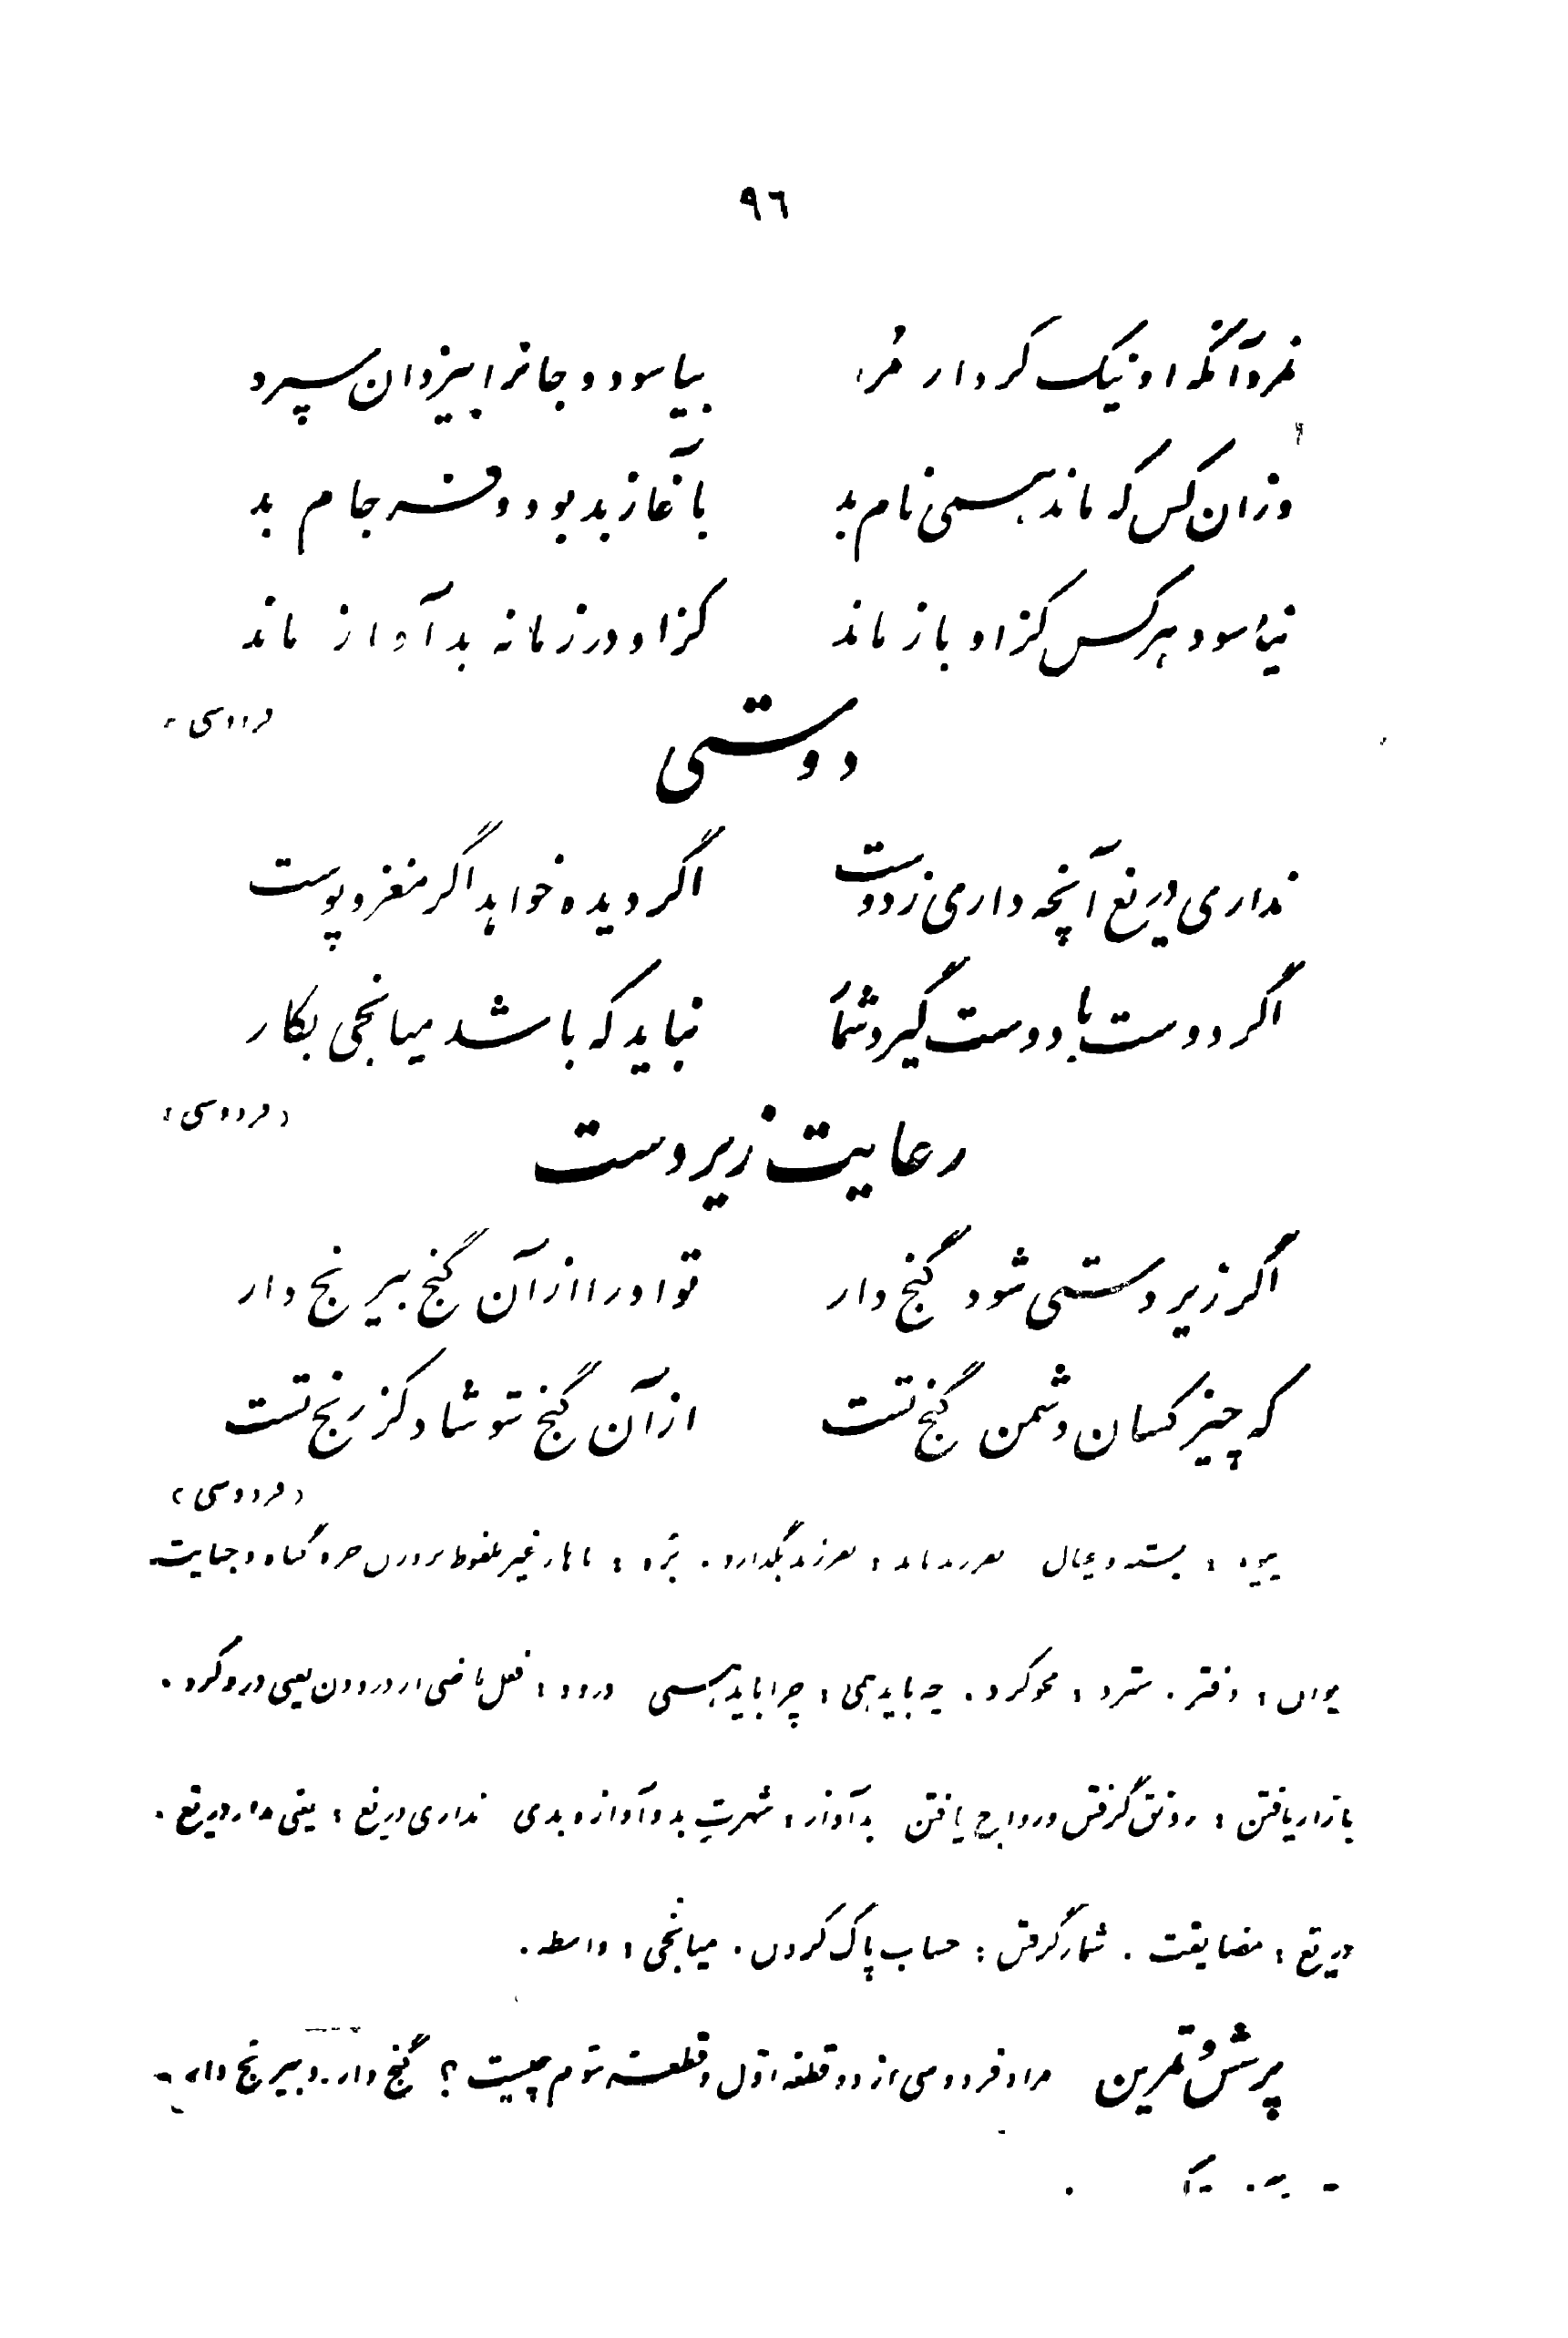 ٩٦
نمرد آنکه او نیک کردار مُرد بیاسود و جانرا بیزدان سپرد
وزان کس که ماند همی نام بد بآغاز بد بود و فرجام بد
نیاسود هر کس کزاو باز ماند کزاو در زمانه بد آواز ماند
فردوسی
دوستی
نداری دریغ آنچه داری ز دوست اگر دیده خواهد اگر مغز و پوست
اگر دوست با دوست گیرد شمار نباید که باشد میانجی بکار
(فردوسی)
رعایت زیردست
اگر زیردستی شود گنج دار تو او را از آن گنج بیرنج دار
که چیز کسان دشمن گنج تست از آن گنج تو شاد کز رنج تست
(فردوسی)
بزه : با هاء غیر ملفوظ بر وزن مزه گناه و جنایت
دیوان : دفتر . سترد : محو کرد . چه باید همی : چرا باید همی درود : فعل ماضی از درودن یعنی درو کرد .
بازار یافتن : رونق گرفتن و رواج یافتن بد آواز : شهرتِ بد و آوازه بدی نداری دریغ : یعنی مدار دریغ .
دریغ : مضایقت . شمار گرفتن : حساب پاک کردن . میانجی : واسطه .
پرسش و تمرین مراد فردوسی از دو قطعه اوّل و قطعه سوّم چیست ؟ گنج دار و بیرنج دار